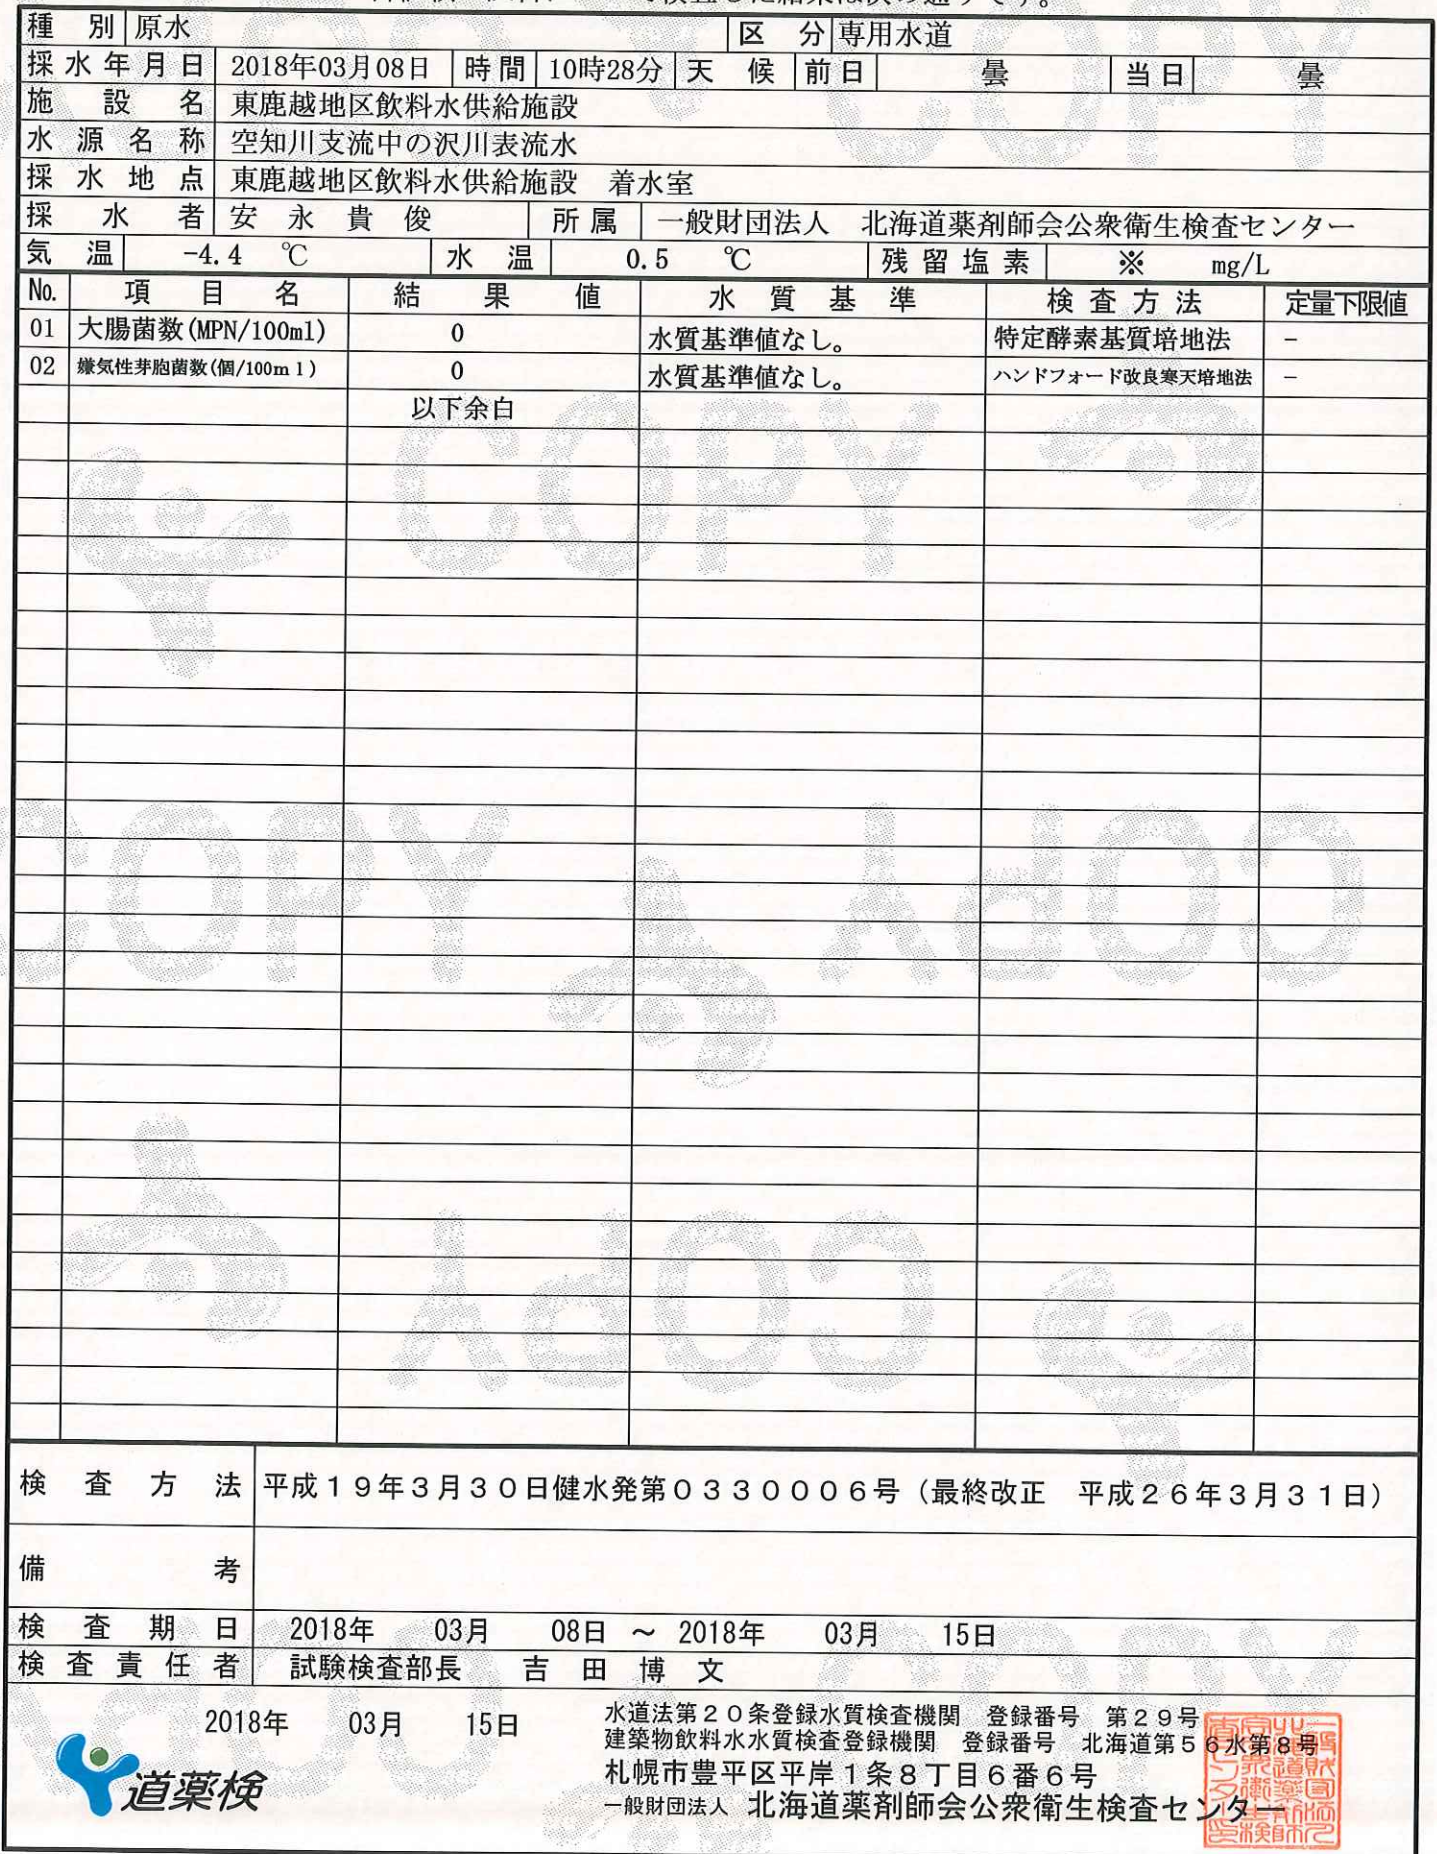 種別 原水 区分 専用水道
採水年月日 2018年03月08日 時間 10時28分 天候 前日 曇 当日 曇
施設名 東鹿越地区飲料水供給施設
水源名称 空知川支流中の沢川表流水
採水地点 東鹿越地区飲料水供給施設 着水室
採水者 安永貴俊 所属 一般財団法人 北海道薬剤師会公衆衛生検査センター
気温 -4.4 ℃ 水温 0.5 ℃ 残留塩素 ※ mg/L
No. 項目名 結果値 水質基準 検査方法 定量下限値
01 大腸菌数(MPN/100ml) 0 水質基準値なし。 特定酵素基質培地法 -
02 嫌気性芽胞菌数(個/100ml) 0 水質基準値なし。 ハンドフォード改良寒天培地法 -
以下余白
COPY
COPY
COPY
COPY
検査方法 平成19年3月30日健水発第0330006号(最終改正 平成26年3月31日)
備考
検査期日 2018年 03月 08日 ~ 2018年 03月 15日
検査責任者 試験検査部長 吉田博文
2018年 03月 15日
水道法第20条登録水質検査機関 登録番号 第29号
建築物飲料水水質検査登録機関 登録番号 北海道第56水第8号
札幌市豊平区平岸1条8丁目6番6号
一般財団法人 北海道薬剤師会公衆衛生検査センター
道薬検